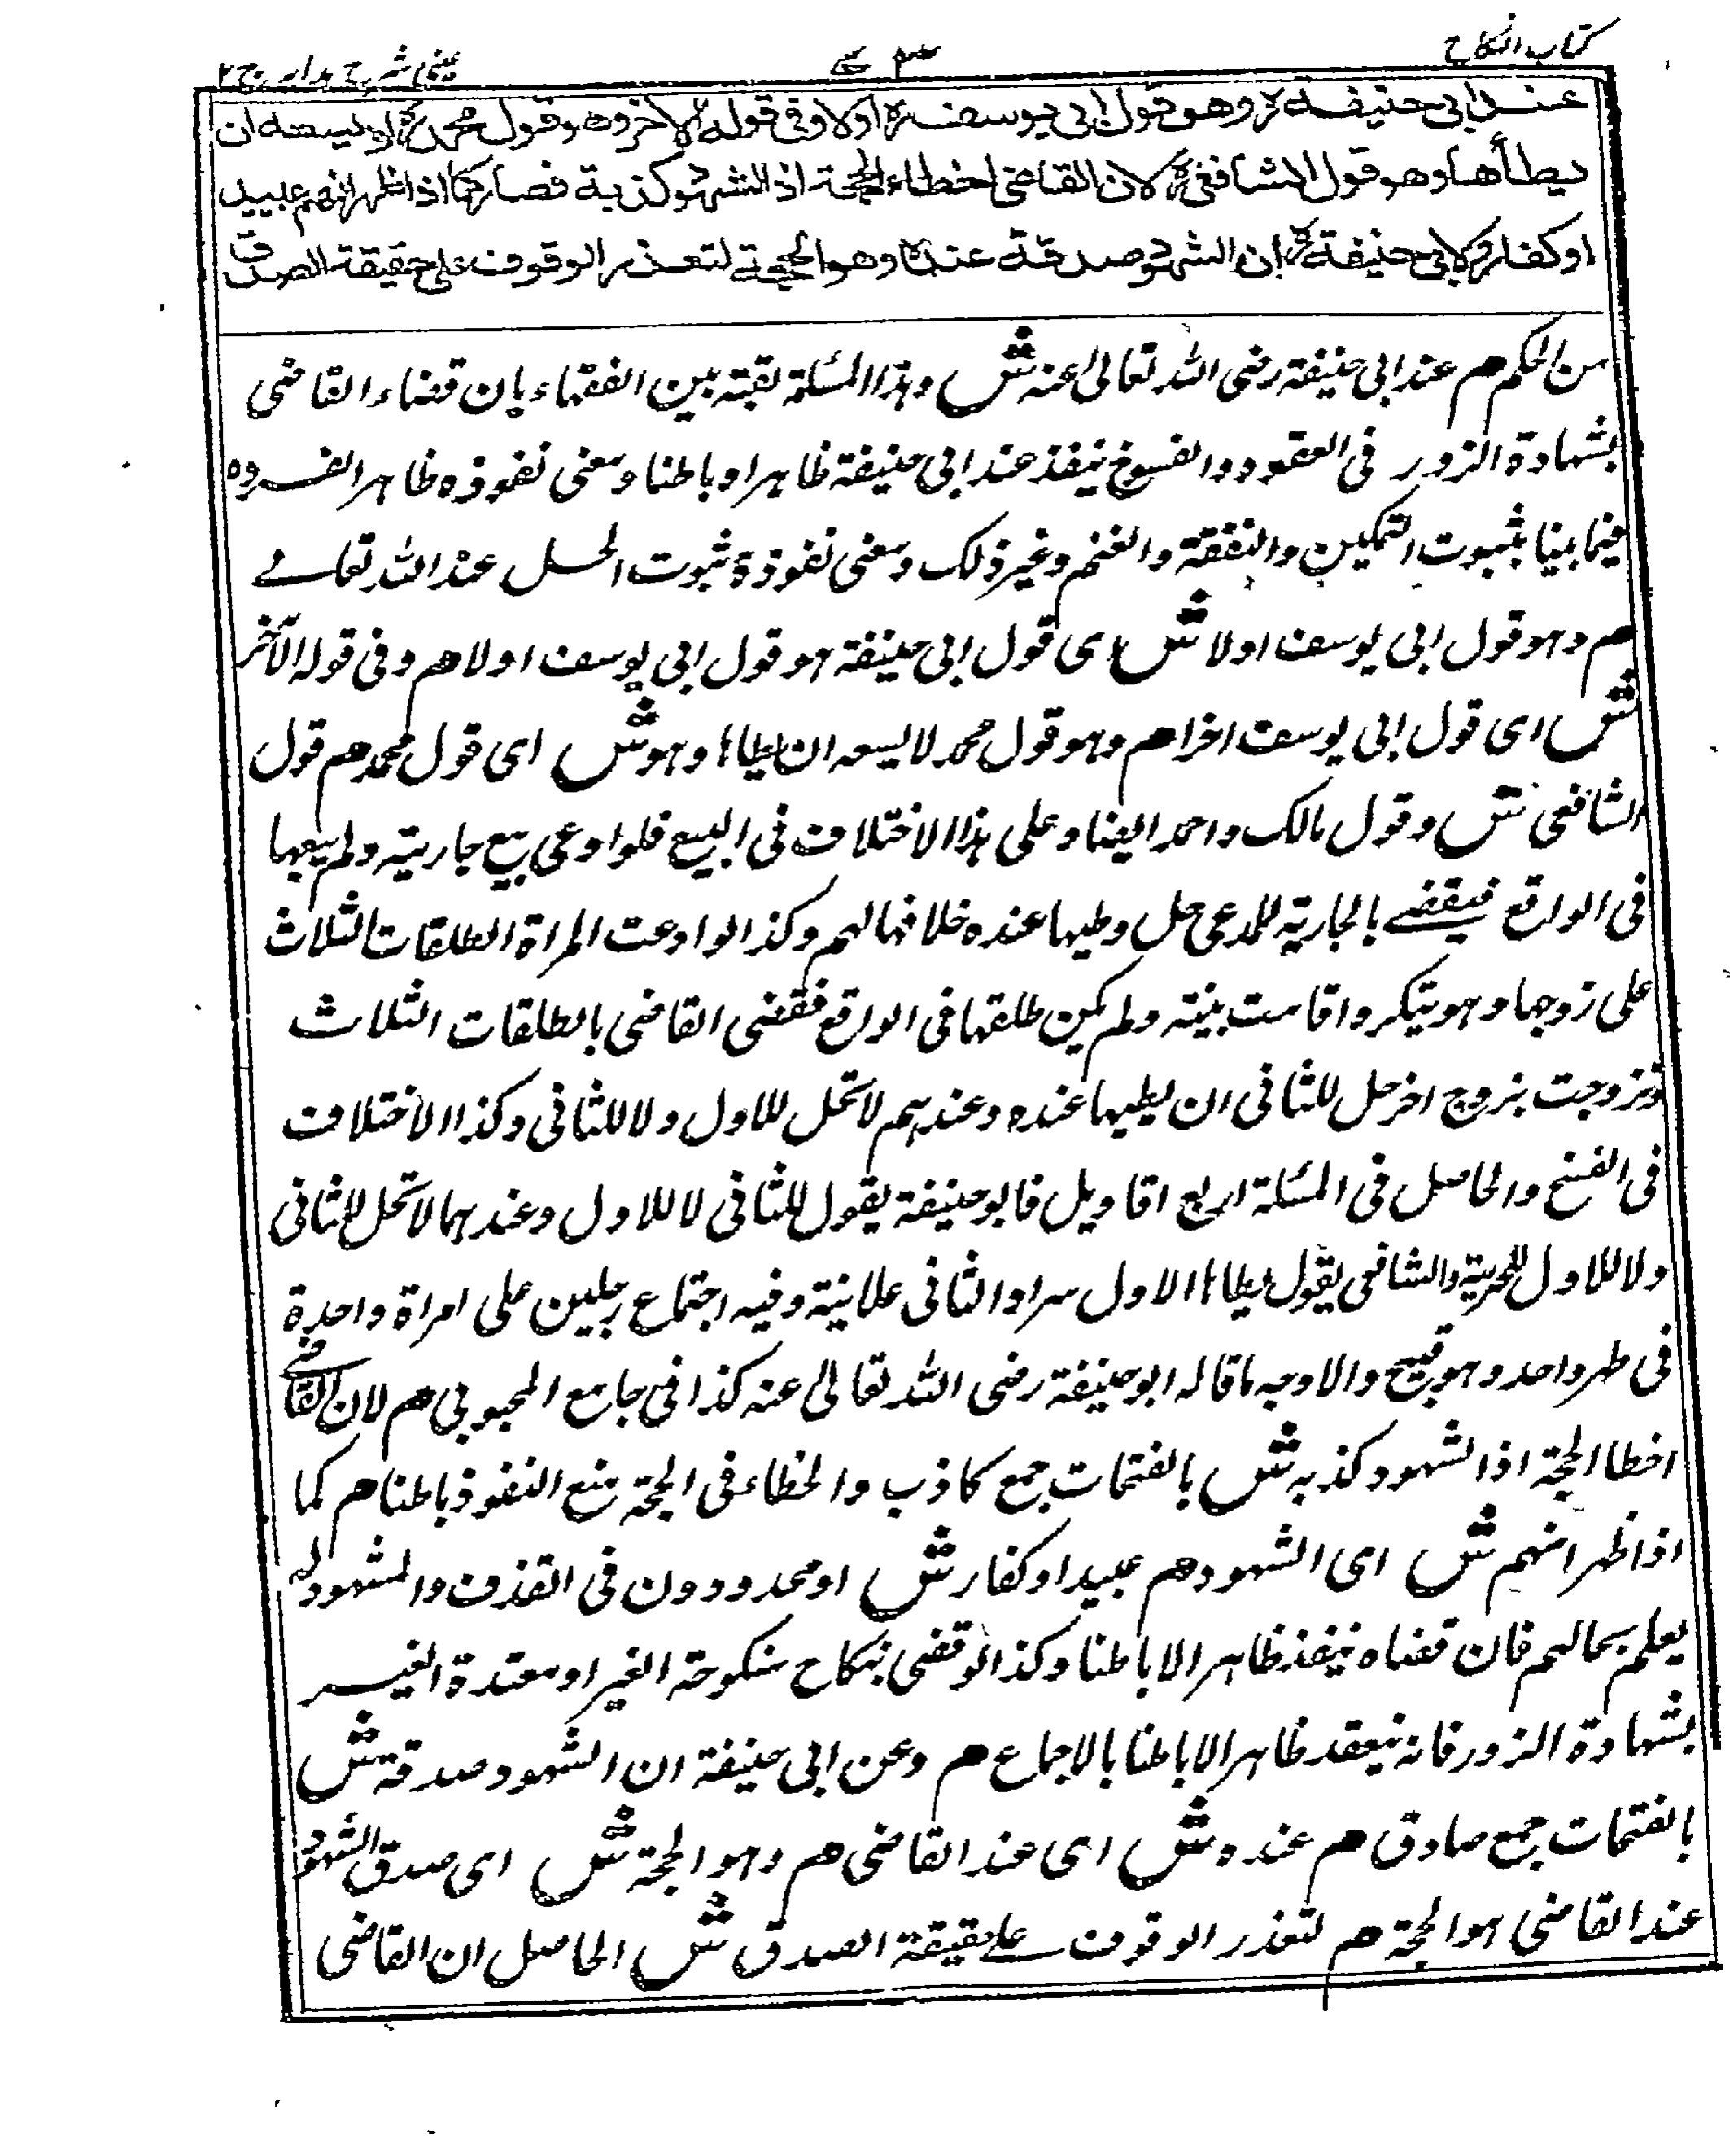 كتاب النكاح
عينى شرح هدايہ ج٢
عند ابي حنيفة رح وهو قول ابي يوسف رح اولا وفي قوله الاخر وهو قول محمد رح لا يسعه ان
يطأها وهو قول الشافعي رح لان القاضي اخطاء الحجة اذ الشهود كذبة فصار كما اذا ظهر انهم عبيد
او كفار ولابي حنيفة رح ان الشهود صدقة عنده وهو الحجة لتعذر الوقوف على حقيقة الصدق
من الحكم م عند ابي حنيفة رضى الله تعالى عنه ش وهذا المسئلة لقبته بين الفقهاء بان قضاء القاضى
بشهادة الزور فى العقود والفسوخ ينفذ عند ابى حنيفة ظاهرا وباطنا ومعنى نفوذه ظاهرا
فيما بيننا بثبوت التمكين والنفقة والقسم وغير ذلك ومعنى نفوذه ثبوت الحل عند الله تعالى
م وهو قول ابى يوسف اولا ش اى قول ابى حنيفة هو قول ابى يوسف اولا م وفى قوله الآخر
ش اى قول ابى يوسف اخرا م وهو قول محمد لا يسعه ان يطاها وهو ش اى قول محمد م قول
الشافعى ش وقول مالك واحمد ايضا وعلى هذا الاختلاف فى البيع فلو ادعى بيع جاريته ولم يبعها
فى الواقع فيقضى بالجارية للمدعى حل وطيها عنده خلافا لهم وكذا لو ادعت المراة الطلقات الثلاث
على زوجها وهو ينكر واقامت بينة ولم يكن طلقها فى الواقع فقضى القاضى بالطلقات الثلاث
وتزوجت بزوج اخر حل للثانى ان يطيها عنده وعندهم لا تحل للاول ولا للثانى وكذا الاختلاف
فى الفسخ والحاصل فى المسئلة اربع اقاويل فابو حنيفة يقول للثانى لا للاول وعندهما لا تحل للثانى
ولا للاول للحرمة والشافعى يقول يطاها الاول سرا والثانى علانية وفيه اجتماع رجلين على امراة واحدة
فى طهر واحد وهو قبيح والاوجه ما قاله ابو حنيفة رضى الله تعالى عنه كذا فى جامع المحبوبى م لان القاضى
اخطا الحجة اذ الشهود كذبه ش بالفتحات جمع كاذب والخطاء فى الحجة يمنع النفوذ باطنا م كما
اذا ظهر انهم ش اى الشهود م عبيد او كفار ش او محدودون فى القذف والمشهود له
يعلم بحالهم فان قضاه ينفذ ظاهرا لا باطنا وكذا لو قضى بنكاح منكوحة الغير او معتدة الغير
بشهادة الزور فانه ينعقد ظاهرا لا باطنا بالاجماع م وعن ابى حنيفة ان الشهود صدقة ش
بالفتحات جمع صادق م عنده ش اى عند القاضى م وهو الحجة ش اى صدق الشهود
عند القاضى هو الحجة م لتعذر الوقوف على حقيقة الصدق ش الحاصل ان القاضى